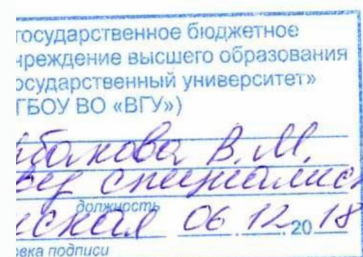 государственное бюджетное
чреждение высшего образования
осударственный университет»
ГБОУ ВО «ВГУ»)
В.М.
специалис
должность
06.12.2018
овка подписи